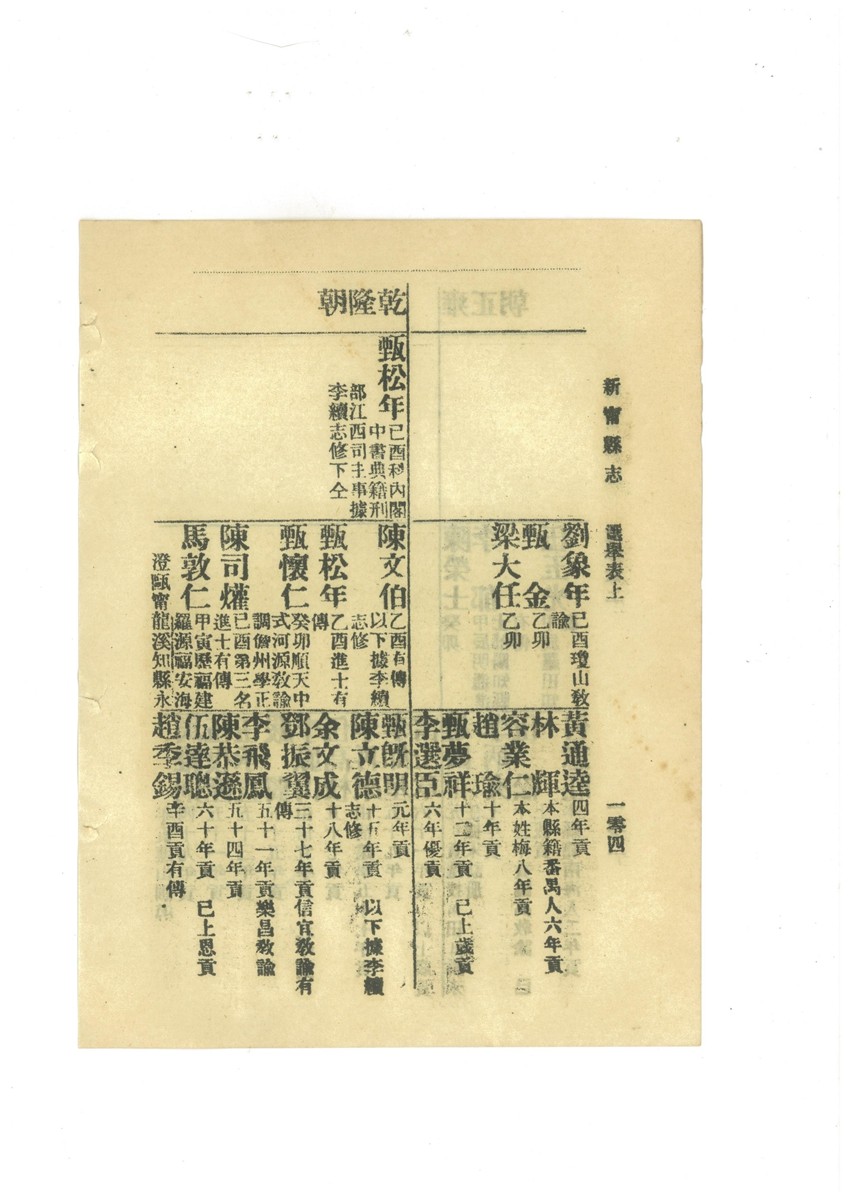 新甯縣志
選舉表上
一零四
劉象年 己酉瓊山教
諭
甄金 乙卯
梁大任 乙卯
黃通逵 四年貢
林輝 本縣籍番禺人六年貢
容業仁 本姓梅八年貢
趙瑜 十年貢
甄夢祥 十二年貢 已上歲貢
李選臣 六年優貢
乾隆朝
甄松年 己酉科內閣
中書典籍刑
部江西司主事據
李續志修下仝
陳文伯 乙酉有傳
以下據李續
志修
甄松年 乙酉進士有
傳
甄懷仁 癸卯順天中
式河源教諭
調儋州學正
陳司爟 己酉第三名
進士有傳
馬敦仁 甲寅歷福建
羅源福安海
澄甌甯龍溪知縣永
甄旣明 元年貢
陳立德 十五年貢 以下據李續
志修
余文成 十八年貢
鄧振翼 三十七年貢信宜教諭有
傳
李飛鳳 五十一年貢樂昌教諭
陳恭遜 五十四年貢
伍達聰 六十年貢 已上恩貢
趙季錫 辛酉貢有傳